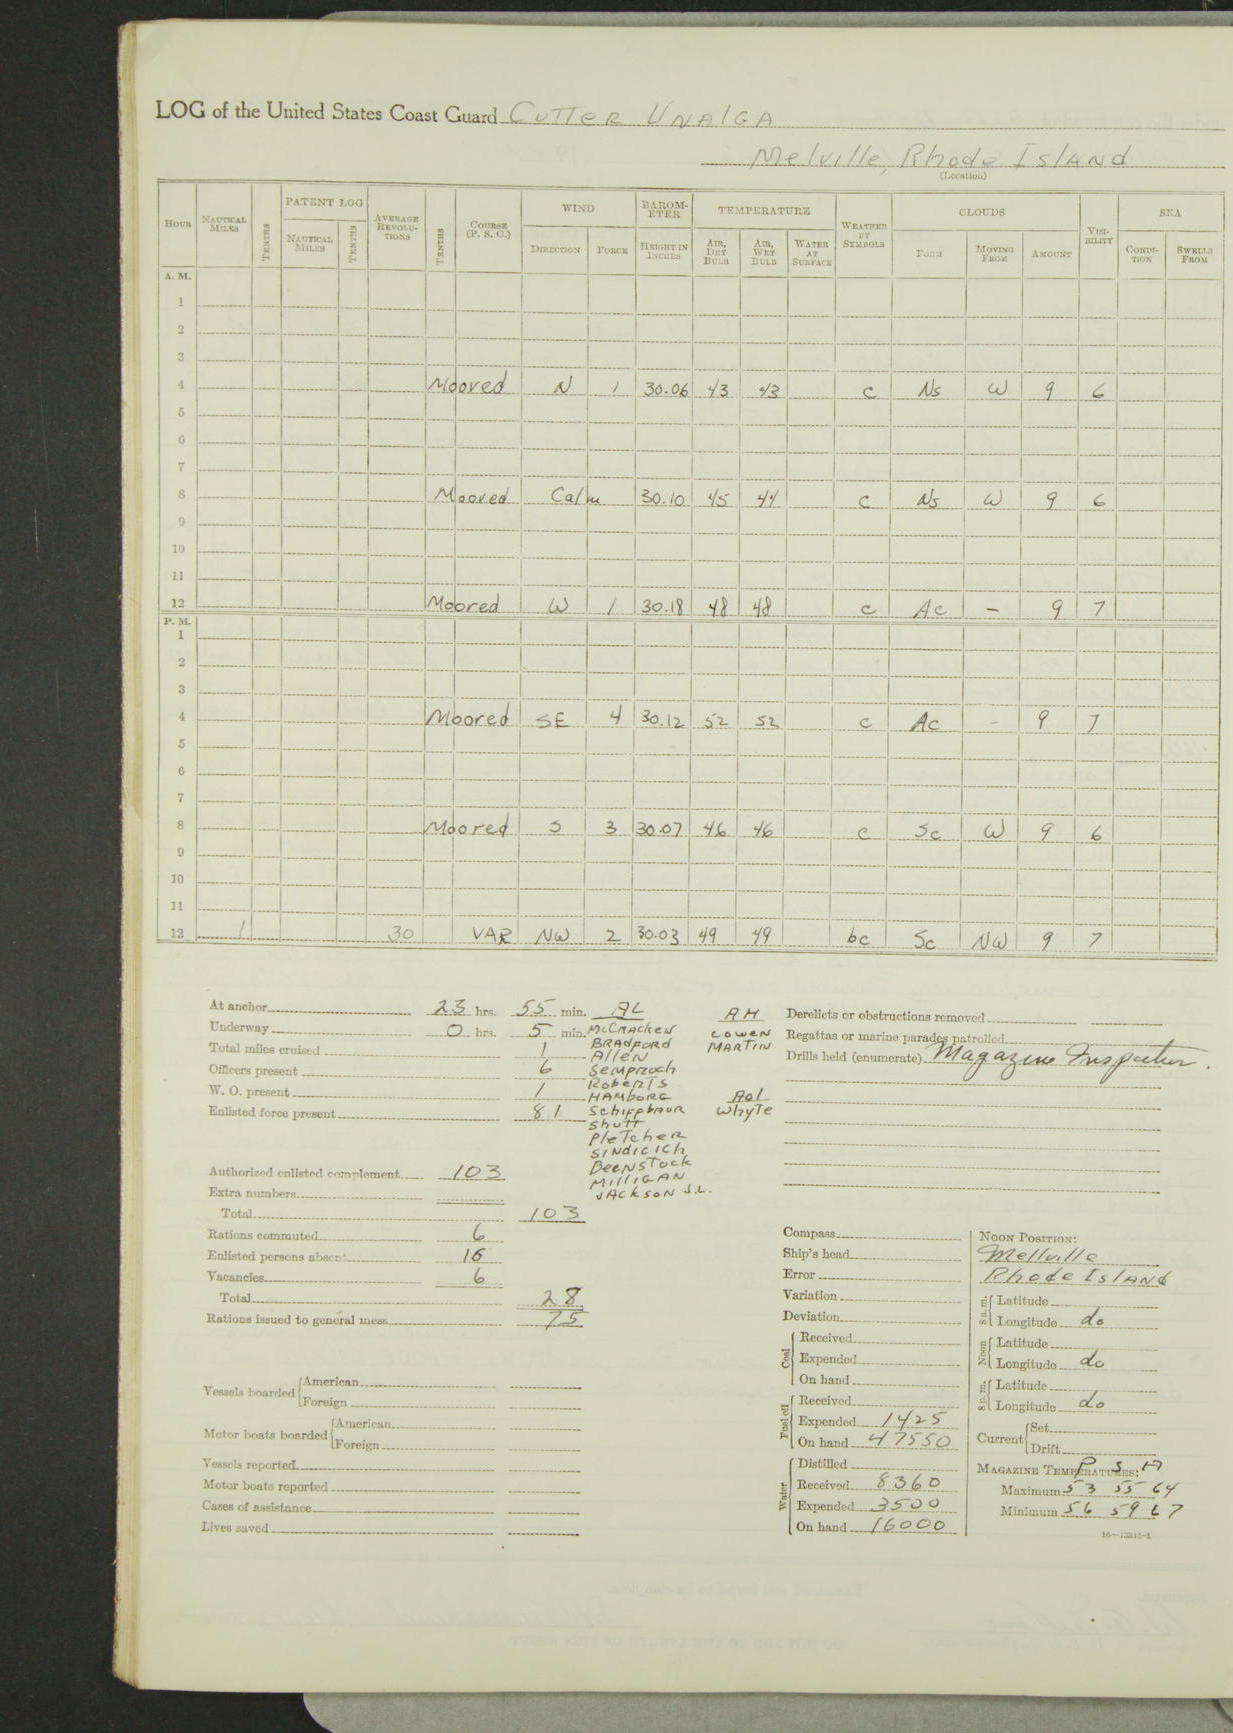 LOG of the United States Coast Guard CUTTER UNALGA
Melville, Rhode Island
(Location)
HOUR NAUTICAL MILES TENTHS PATENT LOG NAUTICAL MILES TENTHS AVERAGE REVOLUTIONS TENTHS COURSE (P. S. C.) WIND DIRECTION FORCE BAROMETER HEIGHT IN INCHES TEMPERATURE AIR, DRY BULB AIR, WET BULB WATER AT SURFACE WEATHER BY SYMBOLS CLOUDS FORM MOVING FROM AMOUNT VISIBILITY SEA CONDITION SWELLS FROM
A. M.
1
2
3
4 Moored N 1 30.06 43 43 c Ns W 9 6
5
6
7
8 Moored Calm 30.10 45 44 c Ns W 9 6
9
10
11
12 Moored W 1 30.18 48 48 c Ac - 9 7
P. M.
1
2
3
4 Moored SE 4 30.12 52 52 c Ac - 9 7
5
6
7
8 Moored S 3 30.07 46 46 c Sc W 9 6
9
10
11
12 1 30 VAR NW 2 30.03 49 49 bc Sc NW 9 7
At anchor 23 hrs. 55 min.
Underway 0 hrs. 5 min.
Total miles cruised 1
Officers present 6
W. O. present 1
Enlisted force present 81
Authorized enlisted complement 103
Extra numbers
Total 103
Rations commuted 6
Enlisted persons absent 16
Vacancies 6
Total 28
Rations issued to general mess 75
Vessels boarded American
Foreign
Motor boats boarded American
Foreign
Vessels reported
Motor boats reported
Cases of assistance
Lives saved
AL
McCracken
BRADFORD
Allen
Semproch
Roberts
HAMBORG
Schiffbaur
Shutt
Pletcher
SINDICICH
Beenstock
MILLIGAN
JACKSON J.L.
AH
Cowen
MARTIN
Aol
Whyte
Derelicts or obstructions removed
Regattas or marine parades patrolled
Drills held (enumerate) Magazine Inspection.
Compass
Ship's head
Error
Variation
Deviation
Coal Received
Expended
On hand
Fuel oil Received
Expended 1425
On hand 47550
Water Distilled
Received 8360
Expended 3500
On hand 16000
NOON POSITION:
Mellville
Rhode Island
8 a. m. Latitude
Longitude do
Noon Latitude
Longitude do
8 p. m. Latitude
Longitude do
Current Set
Drift
MAGAZINE TEMPERATURES: P S A
Maximum 53 55 64
Minimum 56 59 67